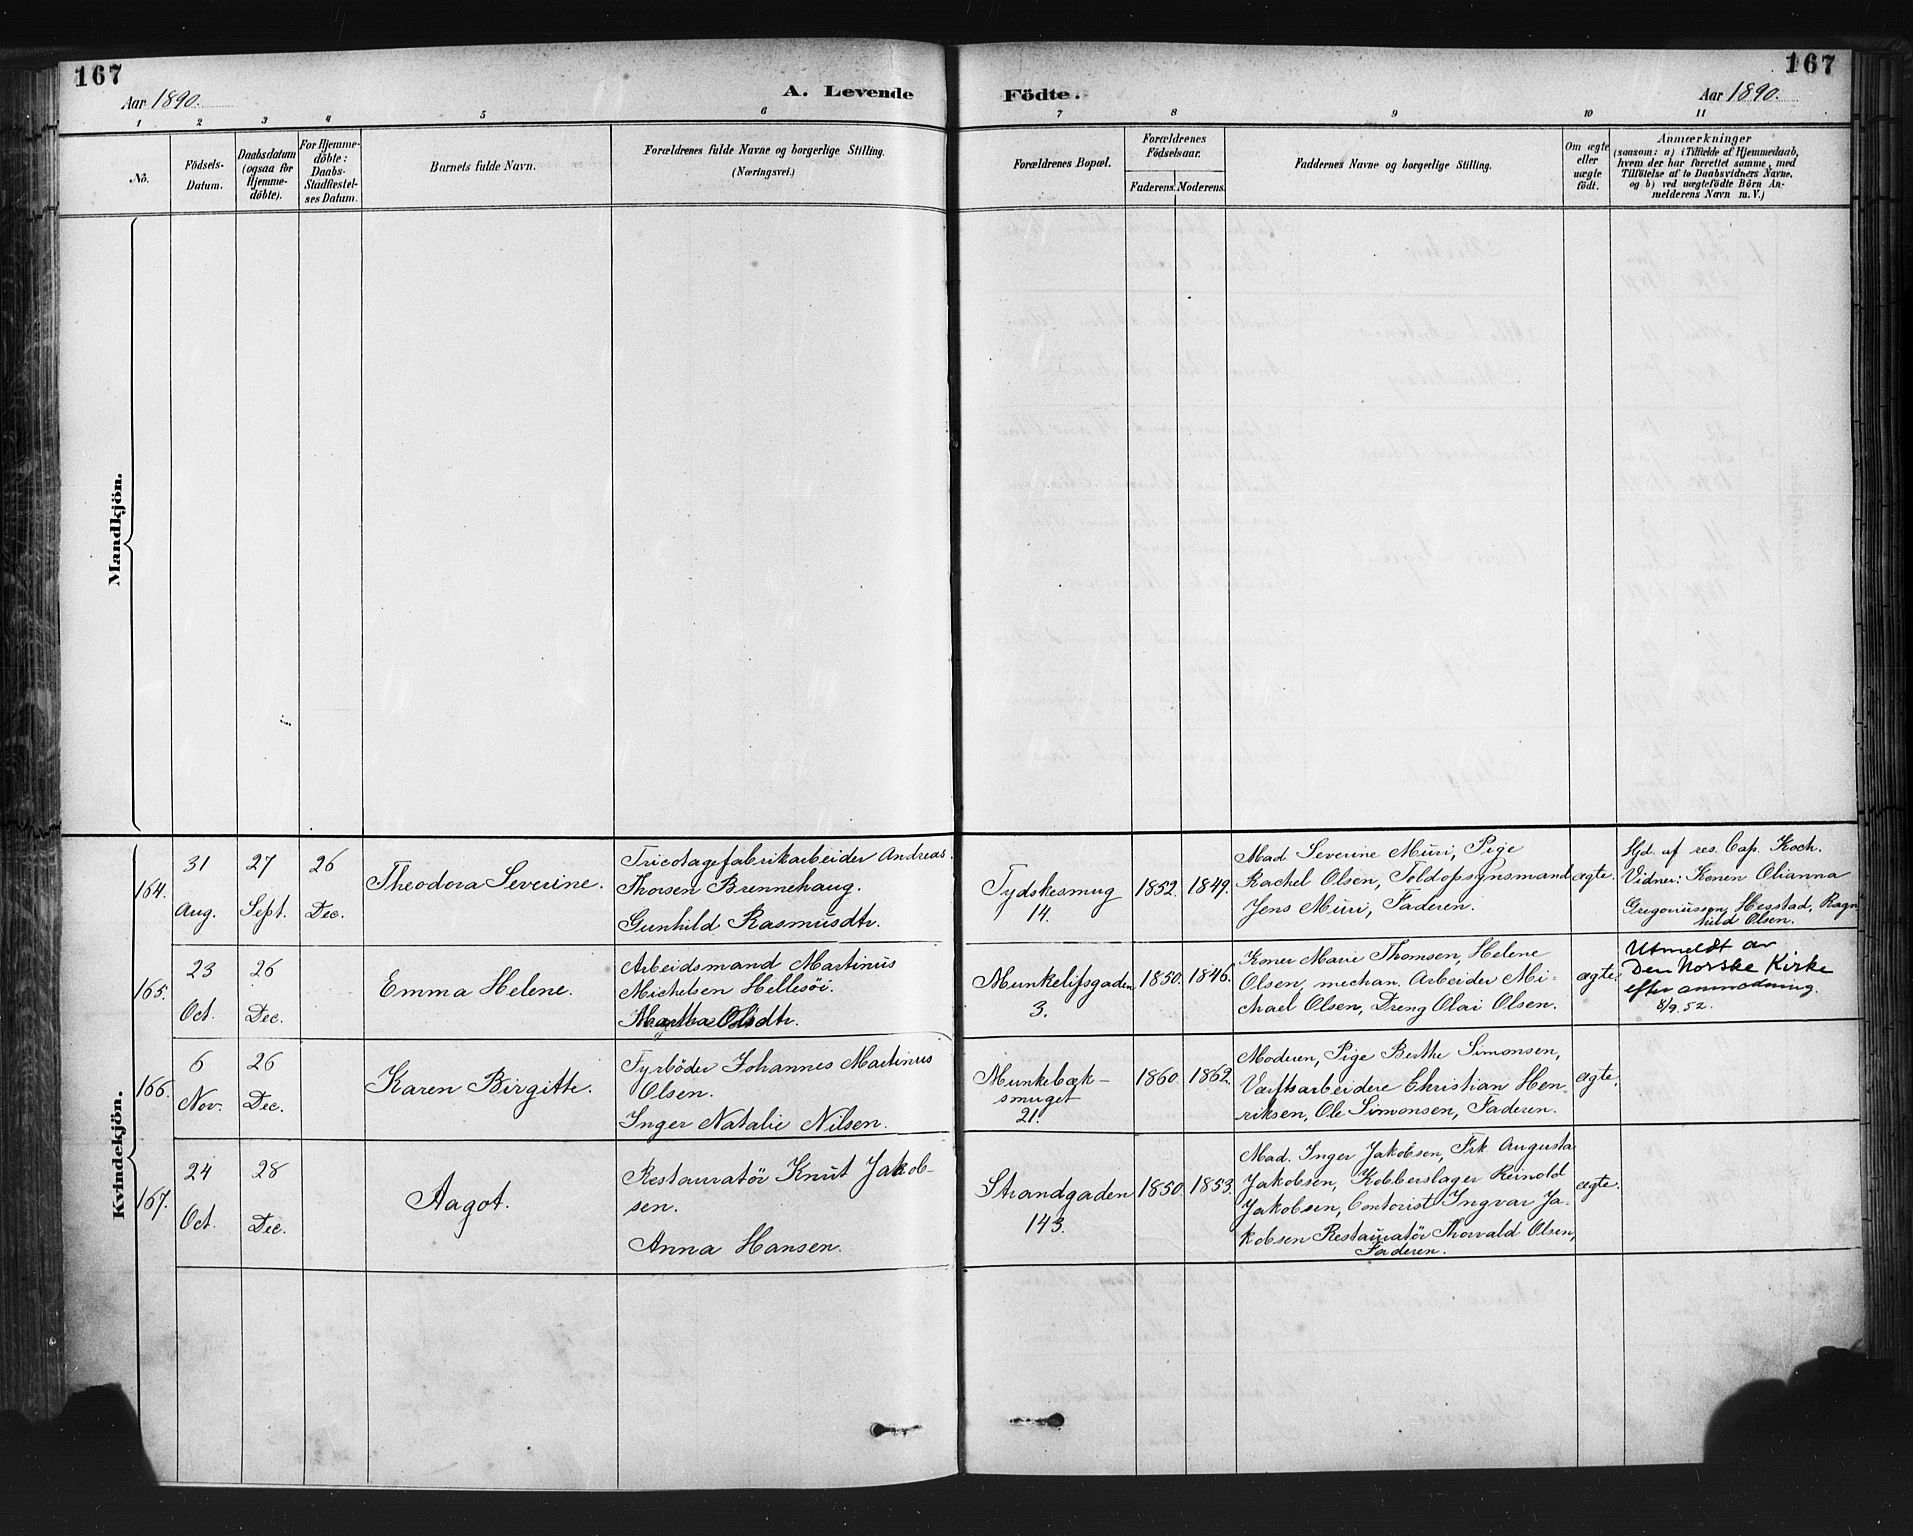 167
Aar 1890.
A. Levende
Födte.
167
Aar 1890.
1 2 3 4 5 6 7 8 9 10 11
No.
Födsels-
Datum.
Daabsdatum
(ogsaa for
Hjemme-
döbte).
For Hjemme-
döbte:
Daabs-
Stadfæstel-
ses Datum.
Barnets fulde Navn.
Forældrenes fulde Navne og borgerlige Stilling.
(Næringsvei.)
Forældrenes Bopæl.
Forældrenes
Födselsaar.
Faderens. Moderens.
Faddernes Navne og borgerlige Stilling.
Om ægte
eller
uægte
födt.
Anmærkninger
(saasom: a) i Tilfælde af Hjemmedaab,
hvem der har forrettet samme, med
Tilföielse af to Daabsvidners Navne,
og b) ved uægtefödte Börn An-
melderens Navn m. V.)
Mandkjön.
Kvindekjön.
164.
31
Aug.
27
Sept.
26
Dec.
Theodora Severine.
Tricotagefabrikarbeider Andreas
Thorsen Brennehaug.
Gunhild Rasmusdtr.
Tydskesmug
14.
1852.
1849.
Mad Severine Muri, Pige
Rachel Olsen, Toldopsynsmand
Jens Muri, Faderen.
ægte.
Hjd. af res. Cap. Koch.
Vidner: Konen Olianna
Gregoriussen Hesstad, Ragn
hild Olsen.
165.
23
Oct.
26
Dec.
Emma Helene.
Arbeidsmand Martinus
Michelsen Hellesöi.
Martha Olsdtr.
Munkelifsgaden
3.
1850.
1846.
Koner Marie Thomsen, Helene
Olsen, mechan. Arbeider Mi-
chael Olsen, Dreng Olai Olsen.
ægte.
Utmeldt av
Den Norske Kirke
efter anmodning.
8/9.52.
166.
6
Nov.
26
Dec.
Karen Birgitte.
Fyrböder Johannes Martinus
Olsen.
Inger Natalie Nilsen.
Munkebæk-
smuget
21.
1860.
1862.
Moderen, Pige Berthe Simonsen,
Værftsarbeidere Christian Hen-
riksen, Ole Simonsen, Faderen.
ægte.
167.
24
Oct.
28
Dec.
Aagot.
Restauratör Knut Jakob-
sen.
Anna Hansen.
Strandgaden
143.
1850.
1853.
Mad. Inger Jakobsen, Frk Augusta
Jakobsen, Kobberslager Reinold
Jakobsen, Contorist Ingvar Ja-
kobsen Restauratör Thorvald Olsen,
Faderen.
ægte.